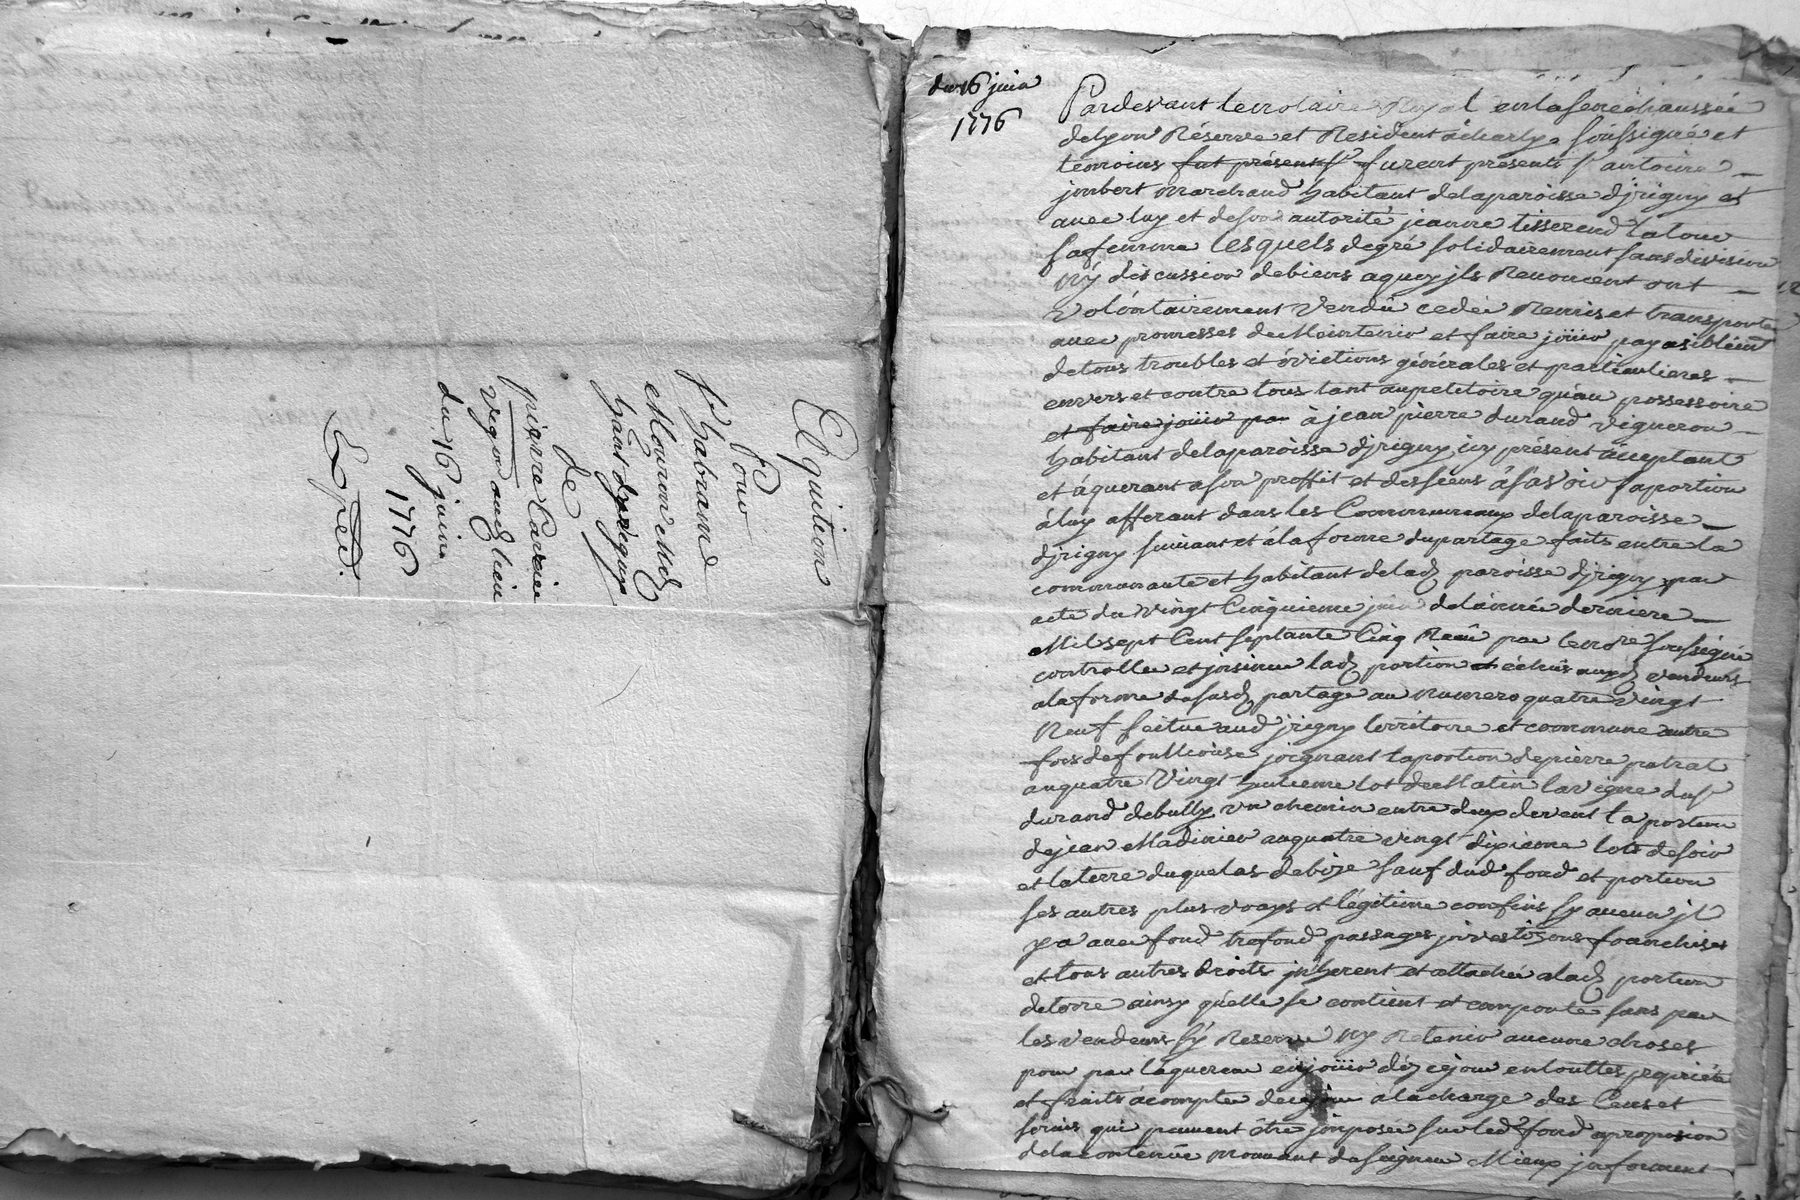 Aquition
Pour
Sr habrand
Mouron Md
habitant djrigny
de
pierre Carrier
vigon aud lieu
du 16 juin
1776
Expéd.
du 16 juin
1776
Pardevant le notaire Royal en la senechaussée
de Lyon Réservé et Resident à charly soussigné et
temoins fut présent sr furent présents sr antoine
jmbert marchand habitant de la paroisse djrigny et
avec luy et de son autorité jeanne tisserend
sa femme lesquels de gré solidairement sans division
ny discussion de biens a quoy jls Renoncent ont
volontairement vendu cedé Remis et transporté
avec promesses de Maintenir et faire joüir payasiblement
de tous troubles et évictions générales et particulieres
envers et contre tous tant au petitoire qu'au possessoire
et faire joüir pa à jean pierre durand vigneron
habitant de la paroisse djrigny jcy présent acceptant
et âquerant a son proffit et des siens â sâvoir la portion
à luy afferant dans les Communeaux de la paroisse
djrigny suivant et à la forme du partage faits entre la
communauté et habitant de lad paroisse djrigny par
acte du vingt Cinquieme juin de l'année derniere
Mil sept Cent septante Cinq Receu par le nore soussigné
controllé et jnsinué lad portion et échus auxd vendeurs
a la forme dususd partage au numero quatre vingt
Neuf scitué aud jrigny territoire et commune autre
fois de foultieuse joignant la portion de pierre patrat
au quatre vingt huitieme lot de Matin la vigne du sr
durand debully un chemin entre deux de vent la portion
de jean Madinier au quatre vingt dixieme lots de soir
et la terre duquelas de bize sauf dud fond et portion
ses autres plus vrays et légitime confins sy aucun jl
ya avec fond trefond passages jnvestizons franchises
et tous autres droits jnherent et attachée a lad portion
de terre ainsy qu'elle se contient et comporte sans par
les vendeurs s'y Reserver ny Retenir aucune choses
pour par l'aquereur en joüir déz ce jour en touttes propriété
et fruits à compter de ce jour a la charge des Cens et
servis qui peuvent être jmposée sur led fond a proposion
de la contenüe mouvant du seigneur Mieux jnformené